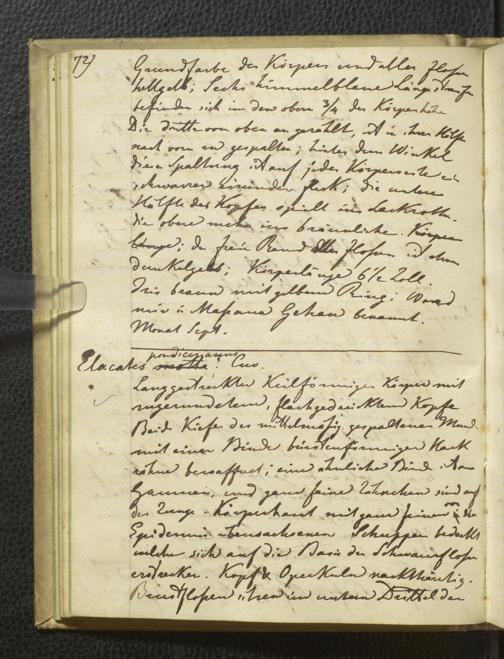 72)
Grundfarbe des Körpers und aller Flossen
hellgelb; Sechs himmelblaue Längsstreifen
befinden sich in den obern 3/4 der Körperhöhe
Die dritte von oben an gezählt, ist in ihrer Hälfte
nach vorn zu gespalten; hinter dem Winkel
dieser Spaltung ist auf jeder Körperseite ein
schwarzer runder Fleck; die untere
Hälfte des Kopfes spielt ins Lackrothe,
die obere mehr ins bräunliche. Körper
länge; der freie Rand aller Flossen ist etwas
dunkelgelb; Körperlänge 6 1/2 Zoll.
Iris braun mit gelbem Ring; Ward
mir in Massaua Gahan benannt.
Monat Sept.
pondicerianus
Elacates motta. Cuv.
Langgestreckter Keilförmiger Körper mit
zugerundetem, flachgedrücktem Kopfe
Beide Kiefer des mittelmäßig gespaltenen Mundes
mit einer Binde bürstenförmiger Hack
zähne bewaffnet; eine ähnliche Binde am
Gaumen, und ganz feine Zähnchen sind auf
der Zunge. Körperhaut mit ganz feinen von der
Epidermis überwachsenen Schuppen bedeckt
welche sich auf die Basis der Schwanzflosse
erstrecken. Kopf & Operkuln nackthäutig.
Brustflossen sitzen im untern Drittel der